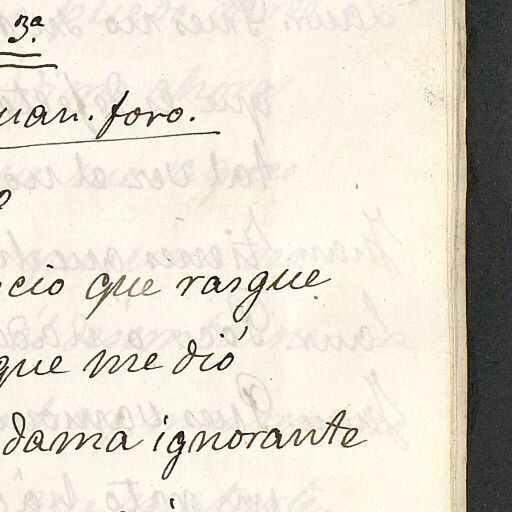 3ª
uan. foro.
cio que rasgue
que me dió
dama ignorante